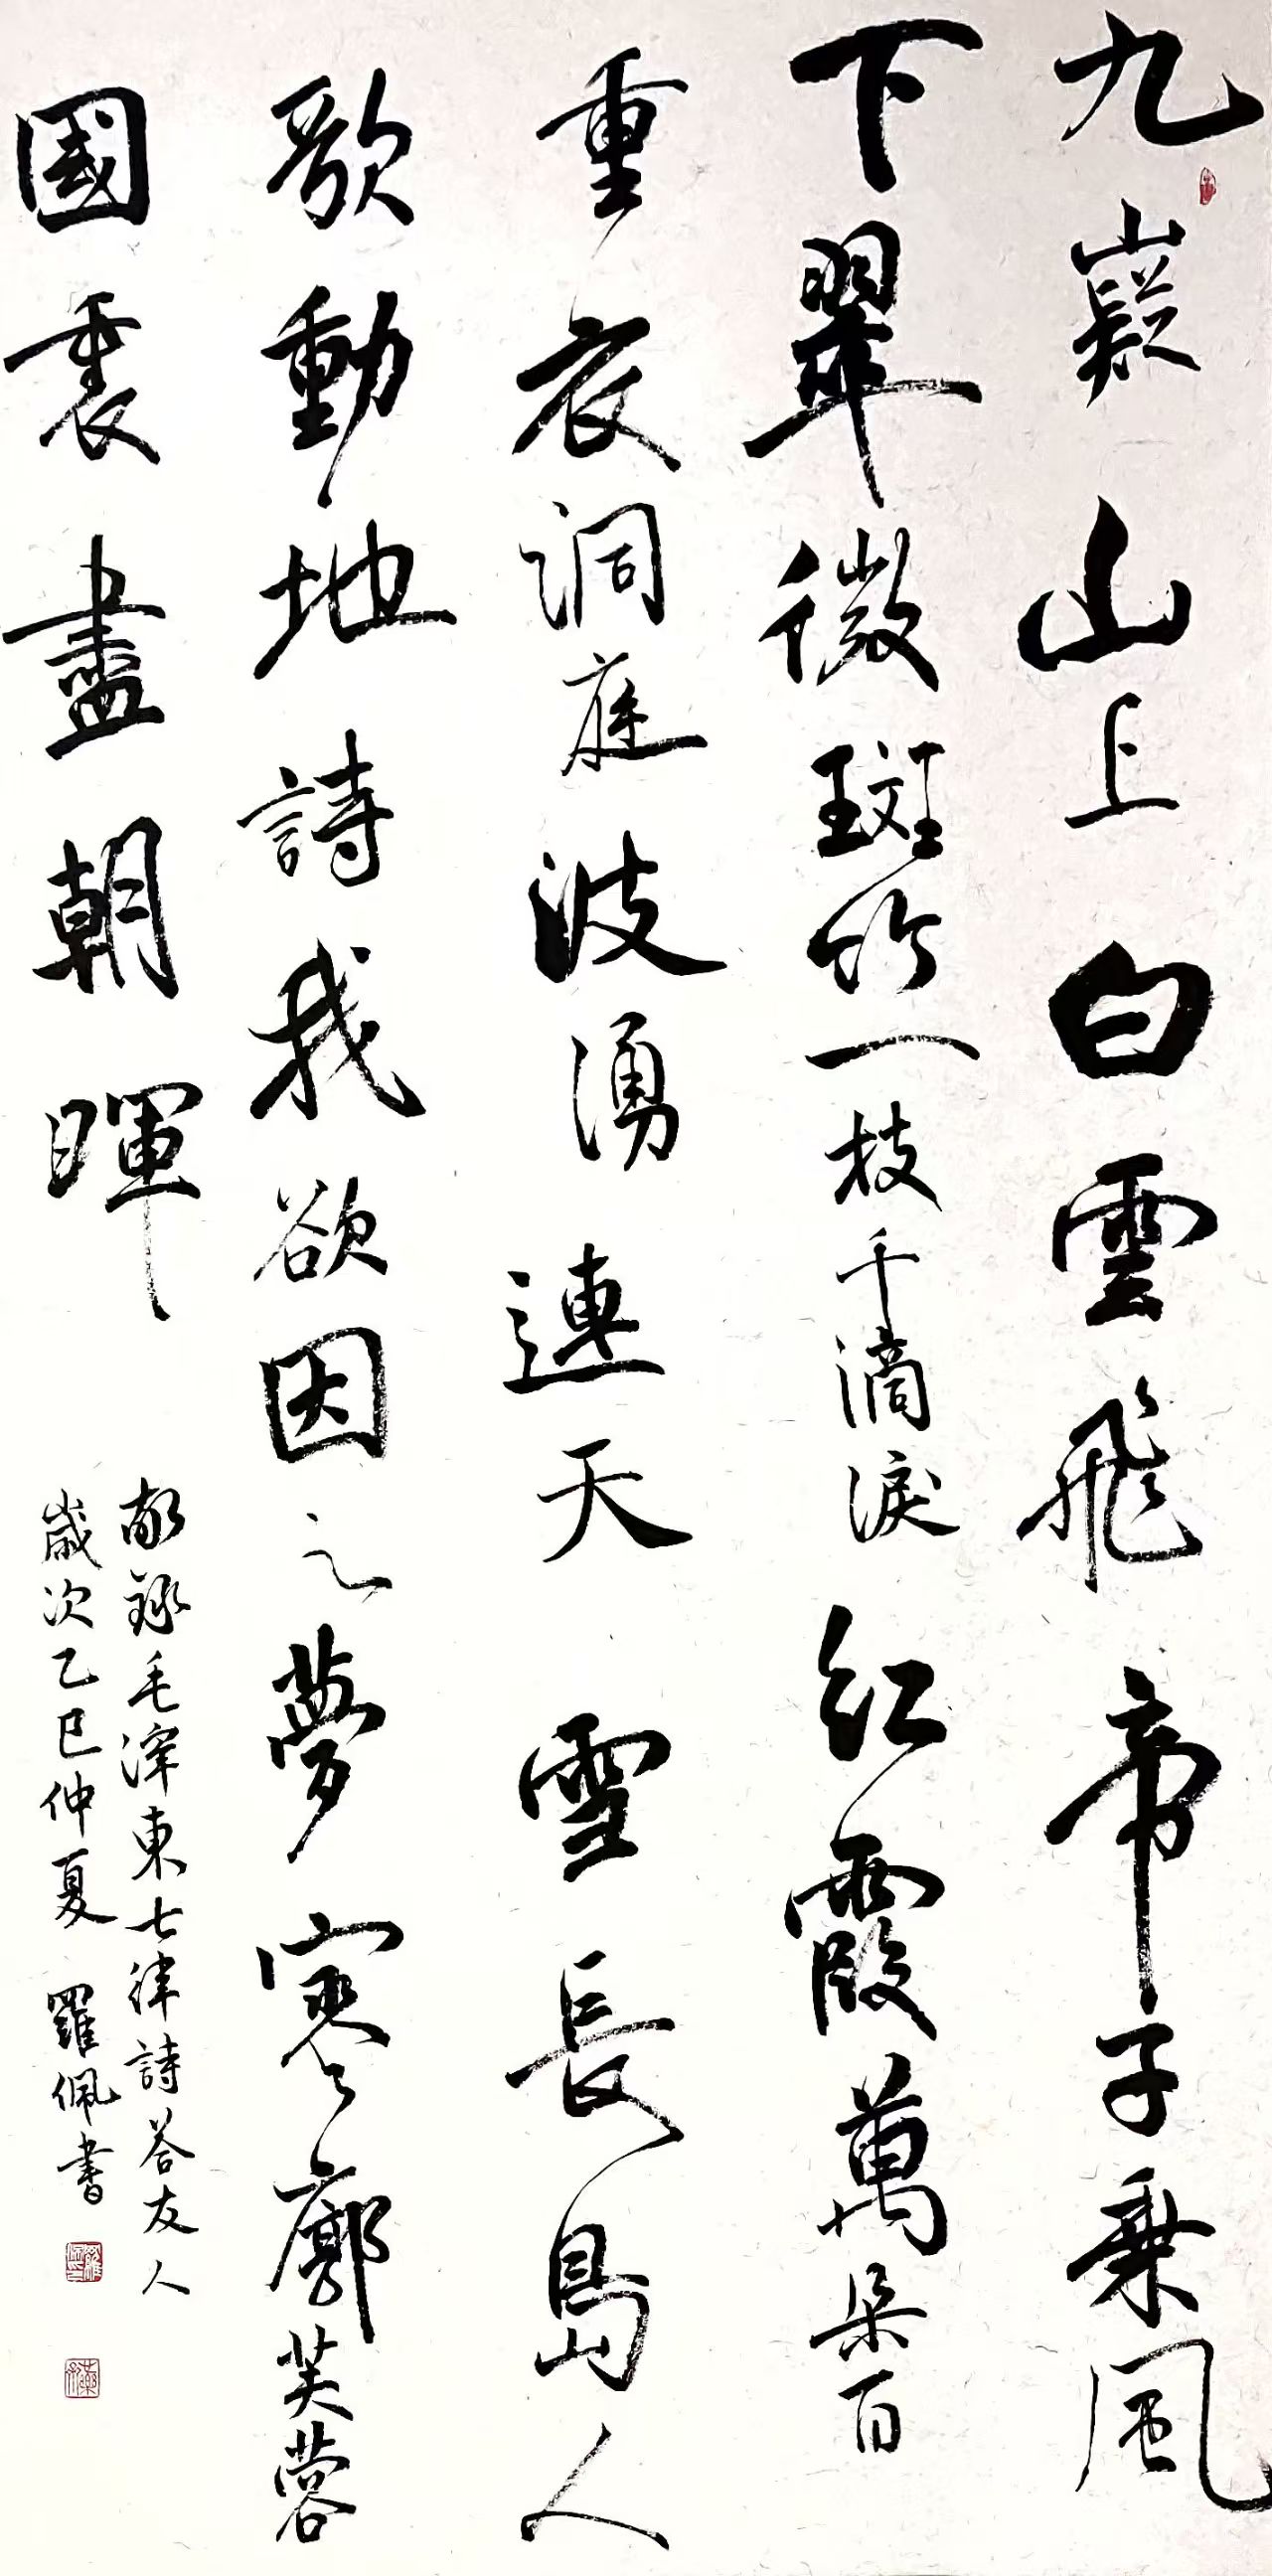 九嶷山上白雲飛帝子乘風
下翠微斑竹一枝千滴淚红霞萬朵百
重衣洞庭波湧連天雪長島人
歌動地詩我欲因之夢寥廓芙蓉
國裏盡朝暉
敬録毛澤東七律詩荅友人
歲次乙巳仲夏 羅佩書